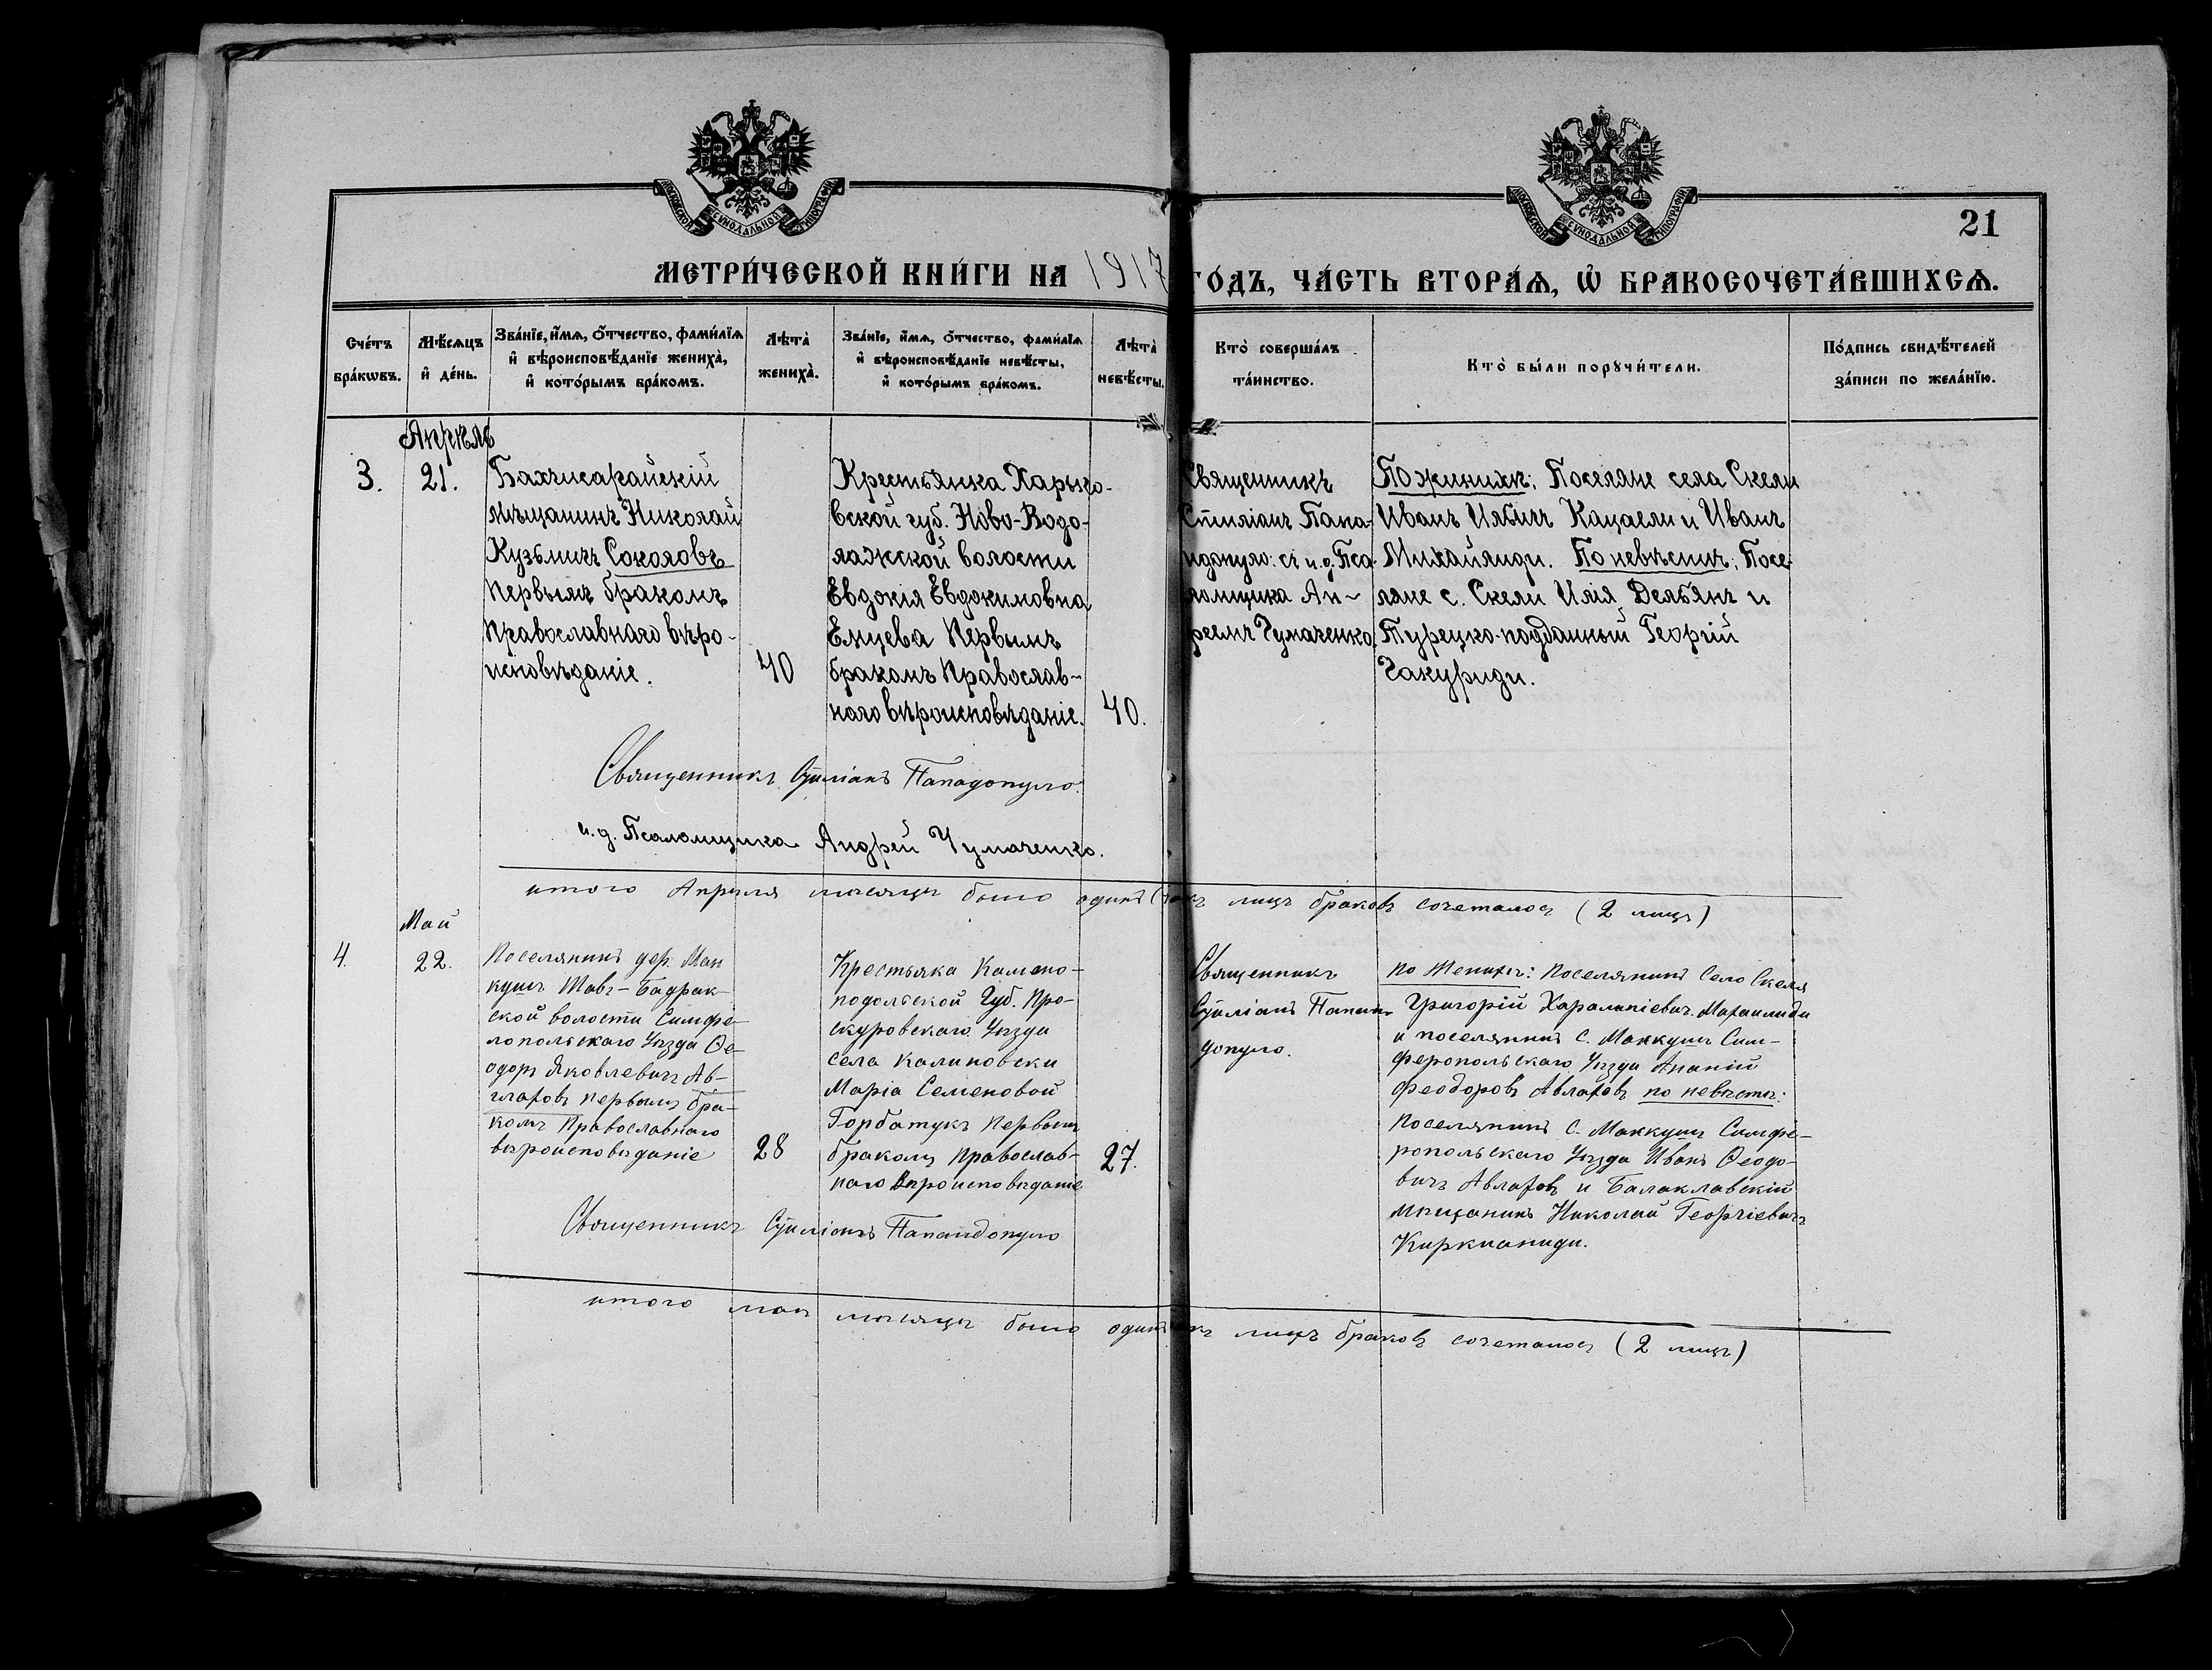 МОСКОВСКОЙ СѴНОДАЛЬНОЙ ТИПОГРАФІИ
МОСКОВСКОЙ СѴНОДАЛЬНОЙ ТИПОГРАФІИ
21
МЕТРИ́ЧЕСКОЙ КНИ́ГИ НА 1917 ГО́ДЪ, ЧА́СТЬ ВТОРА́Ѧ, Ѽ БРАКОСОЧЕТА́ВШИХСѦ.
Сче́тъ
бра́кѡвъ.
Мѣ́сѧцъ
и҆ де́нь.
Зва́нїе, и҆́мѧ, ѻ҆́тчество, фами́лїѧ
и҆ вѣроисповѣ́данїе жениха̀,
и҆ кото́рымъ бра́комъ.
Лѣта̀
жениха̀.
Зва́нїе, и҆́мѧ, ѻ҆́тчество, фами́лїѧ
и҆ вѣроисповѣ́данїе невѣ́сты,
и҆ кото́рымъ бра́комъ.
Лѣта̀
невѣ́сты.
Кто̀ соверша́лъ
та́инство.
Кто̀ бы́ли порꙋчи́тели.
По́дпись свидѣ́телей
за́писи по жела́нїю.
Апрѣль
3.
21.
Бахчисарайскій
мѣщанинъ Николай
Кузьмичъ Соколовъ
первымъ бракомъ
Православнаго вѣро-
исповѣданіе.
40
Крестьянка Харько-
вской губ. Ново-Водо-
лажской волости
Евдокія Евдокимовна
Емцева первымъ
бракомъ Православ-
наго вѣроисповѣданіе.
40.
Священникъ
Стиліанъ Папа-
ндопуло: съ и.д. Пса-
ломщика Ан-
реемъ Чумаченко.
По женихѣ: Поселяне села Скели
Иванъ Ильичъ Кацаели и Иванъ
Михайлиди. По невѣстѣ: Посе-
ляне с. Скели Илія Дельянъ и
Турецко-подданный Георгій
Чакуриди.
Священникъ Стиліанъ Пападопуло.
и.д. Псаломщика Андрей Чумаченко.
итого Апреля месяцъ было одинъ лицъ браковъ сочеталось (2 лицъ)
Май
4.
22.
Поселянинъ дер. Ман
кушъ Тавъ-Бадрак-
ской волости Симфе-
лопольскаго Уезда Ѳе-
одоръ Яковлевичъ Ав-
глаховъ первымъ бра-
комъ Православнаго
вѣроисповѣданіе
28
Крестьяка Камено-
подольской Губ. Про-
скуровскаго Уѣзда
села Калиновски
Марія Семеновой
Горбатукъ первымъ
бракомъ Православ-
наго Вѣроисповѣданіе
27.
Священникъ
Стиліанъ Папан-
допуло.
по Женихѣ: поселянинъ Село Скеля
Григорій Харалапіевичъ Михаилиди
и поселянинъ с. Манкушъ Сим-
феропольскаго Уѣзда Ананій
Феодоровъ Авлаховъ по невѣстѣ:
поселянинъ с. Манкушъ Симфе-
ропольскаго Уѣзда Иванъ Ѳеодо-
вичъ Авлаховъ и Балаклавскій
мѣщанинъ Николай Георгіевичъ
Киркианиди.
Священникъ Стиліанъ Папандопуло
итого маи месяцъ было одинъ лицъ браковъ сочеталось (2 лицъ)